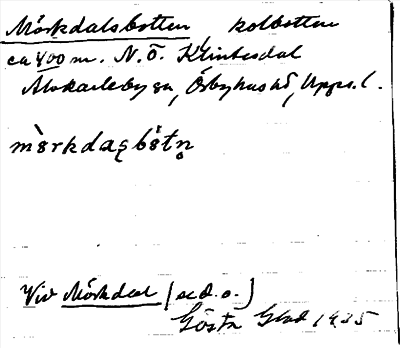 Mörkdalsbotten, kolbotten
ca 400 m. N.Ö. Klintesdal
Älvkarleby sn, Örbyhus hd, Upps. l.
mörkdaḷbòtṇ
Vid Mörkdal (se d.o.)
Gösta Glad 1935